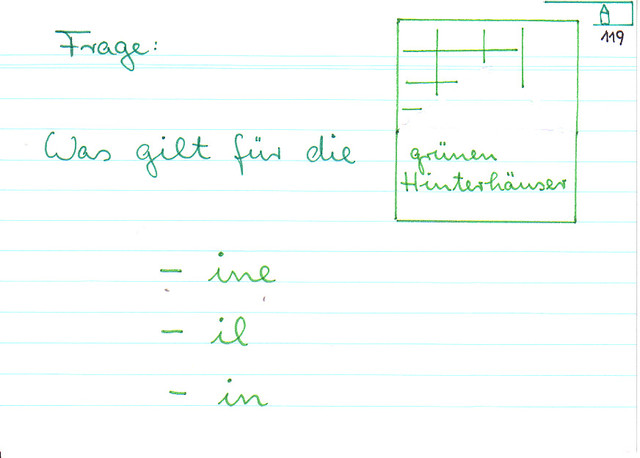 119
Frage:
Was gilt für die
grünen
Hinterhäuser
- ine
- il
- in